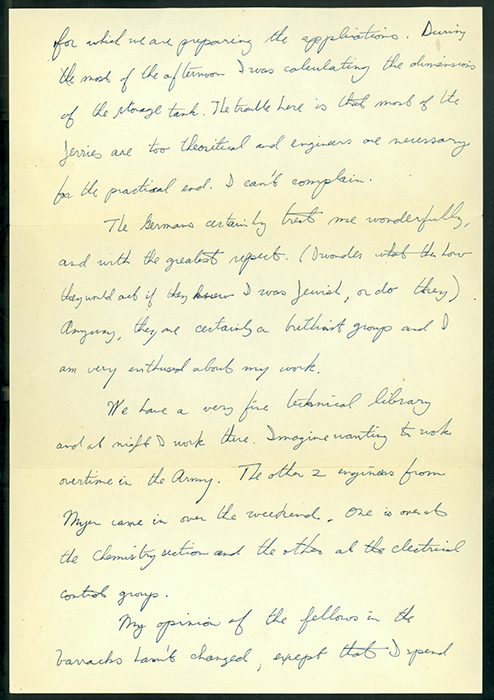 for which we are preparing the applications. During
the most of the afternoon I was calculating the dimensions
of the storage tank. The trouble here is that most of the
Jerries are too theoritical and engineers are necessary
for the practical end. I can't complain.
The Germans certainly treat me wonderfully,
and with the greatest repect. (I wonder what the how
they would act if they knew I was Jewish, or do they)
Anyway, they are certainly a brilliant group and I
am very enthused about my work.
We have a very fine technical library
and at night I work there. Imagine wanting to work
overtime in the Army. The other 2 engineers from
Myer came in over the weekend. One is over at
the chemistry section and the other at the electrical
controls group.
My opinion of the fellows in the
barracks hasn't changed, except that I spend